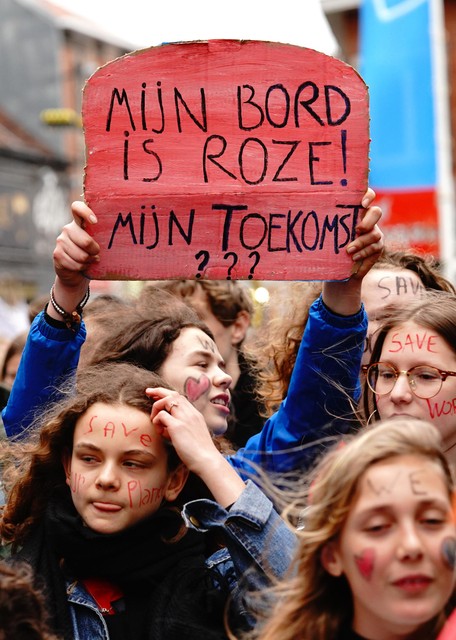 MIJN BORD
iS ROZE!
MIJN TOEKOMST
???
SAVE
SAVE
SAVE
WE